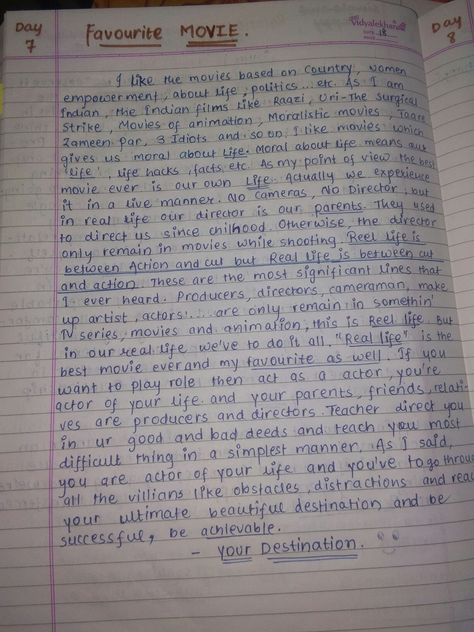 Day
7
Favourite MOVIE.
Vidyalekhan
DATE 18
Day
8
I like the movies based on country, women
empowerment, about life, politics... etc. As I am
Indian, the Indian films like Raazi, Uri-The Surgical
Strike, Movies of animation, Moralistic movies, Taare
Zameen Par, 3 Idiots and so on. I like movies which
gives us moral about life. Moral about life means our
'life', life hacks, facts, etc. As my point of view the best
movie ever is our own life. Actually we experience
it in a live manner. No cameras, No Director, but
in real life our director is our parents. They used
to direct us since chilhood. Otherwise, the director
only remain in movies while shooting. Reel life is
between Action and cut but Real life is between cut
and action. These are the most significant lines that
I ever heard. Producers, directors, cameraman, make
up artist, actors'.... are only remain in somethin'
TV series, movies and animation, this is Reel life. But
in our real life we've to do it all. "Real life" is the
best movie ever and my favourite as well. If you
want to play role then act as a actor, you're
actor of your life. and your parents, friends, relati-
ves are producers and directors. Teacher direct you
in ur good and bad deeds and teach you most
difficult thing in a simplest manner. As I said,
you are actor of your life and you've to go through
all the villians like obstacles, distractions and reac
your ultimate beautiful destination and be
successful, be achievable.
- Your Destination.